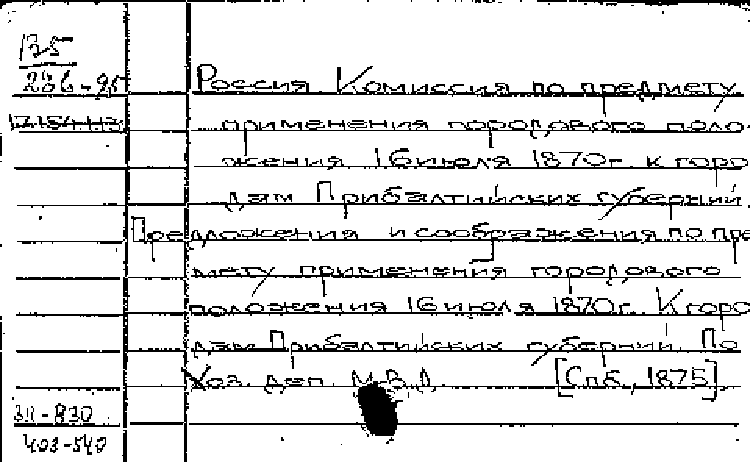 135
286-95
Россия. Комиссия по предмету
применения городового поло-
жения 16 июля 1870 г. к горо
дам Прибалтийских губерний.
Предложения и соображения по пре
мету применения городового
положения 16 июля 1870 г. К горо
дам Прибалтийских губерний. По
Хоз. деп. М.В.Д. [Спб., 1875].
403-540